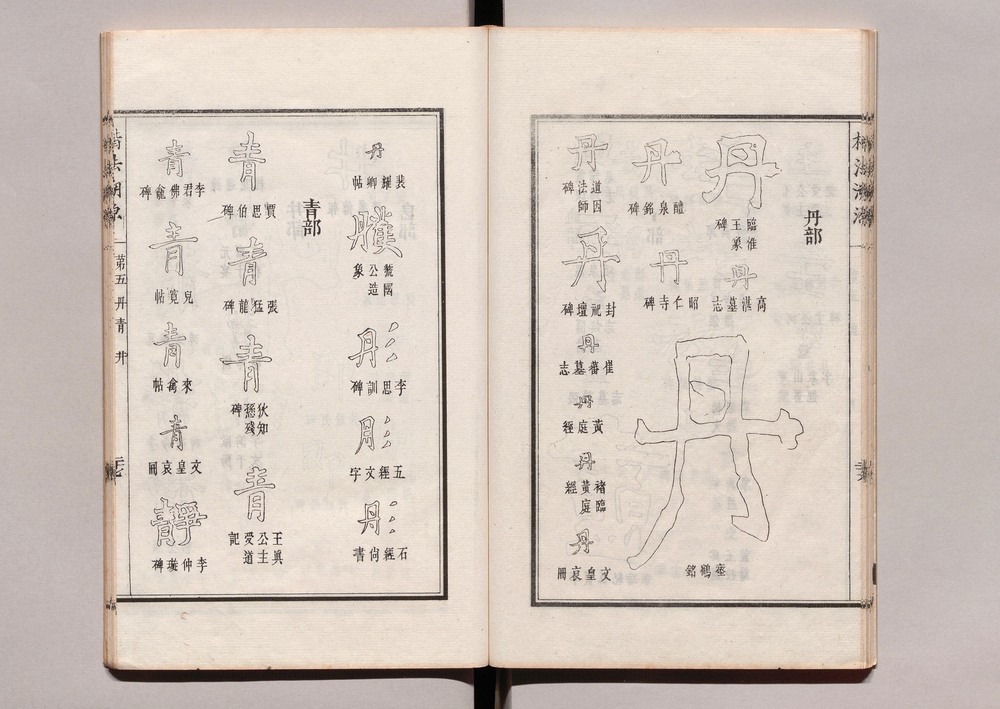 楷法溯源
丹部
丹
臨淮王象碑
丹
高湛墓志
丹
瘞鶴銘
丹
醴泉銘碑
丹
昭仁寺碑
丹
道因法師碑
丹
封祀壇碑
丹
崔蕃墓志
丹
黃庭經
丹
褚臨黃庭經
丹
文皇哀冊
丹
裴耀卿帖
虢國公造象
彤
李思訓碑
彤
五經文字
彤
石經尚書
青部
青
賈思伯碑
青
張猛龍碑
青
狄知愻殘碑
青
王眞公主受道記
青
李君佛龕碑
青
兒寬帖
青
來禽帖
青
文皇哀冊
靜
李仲璇碑
楷法溯源
第五 丹 青 井